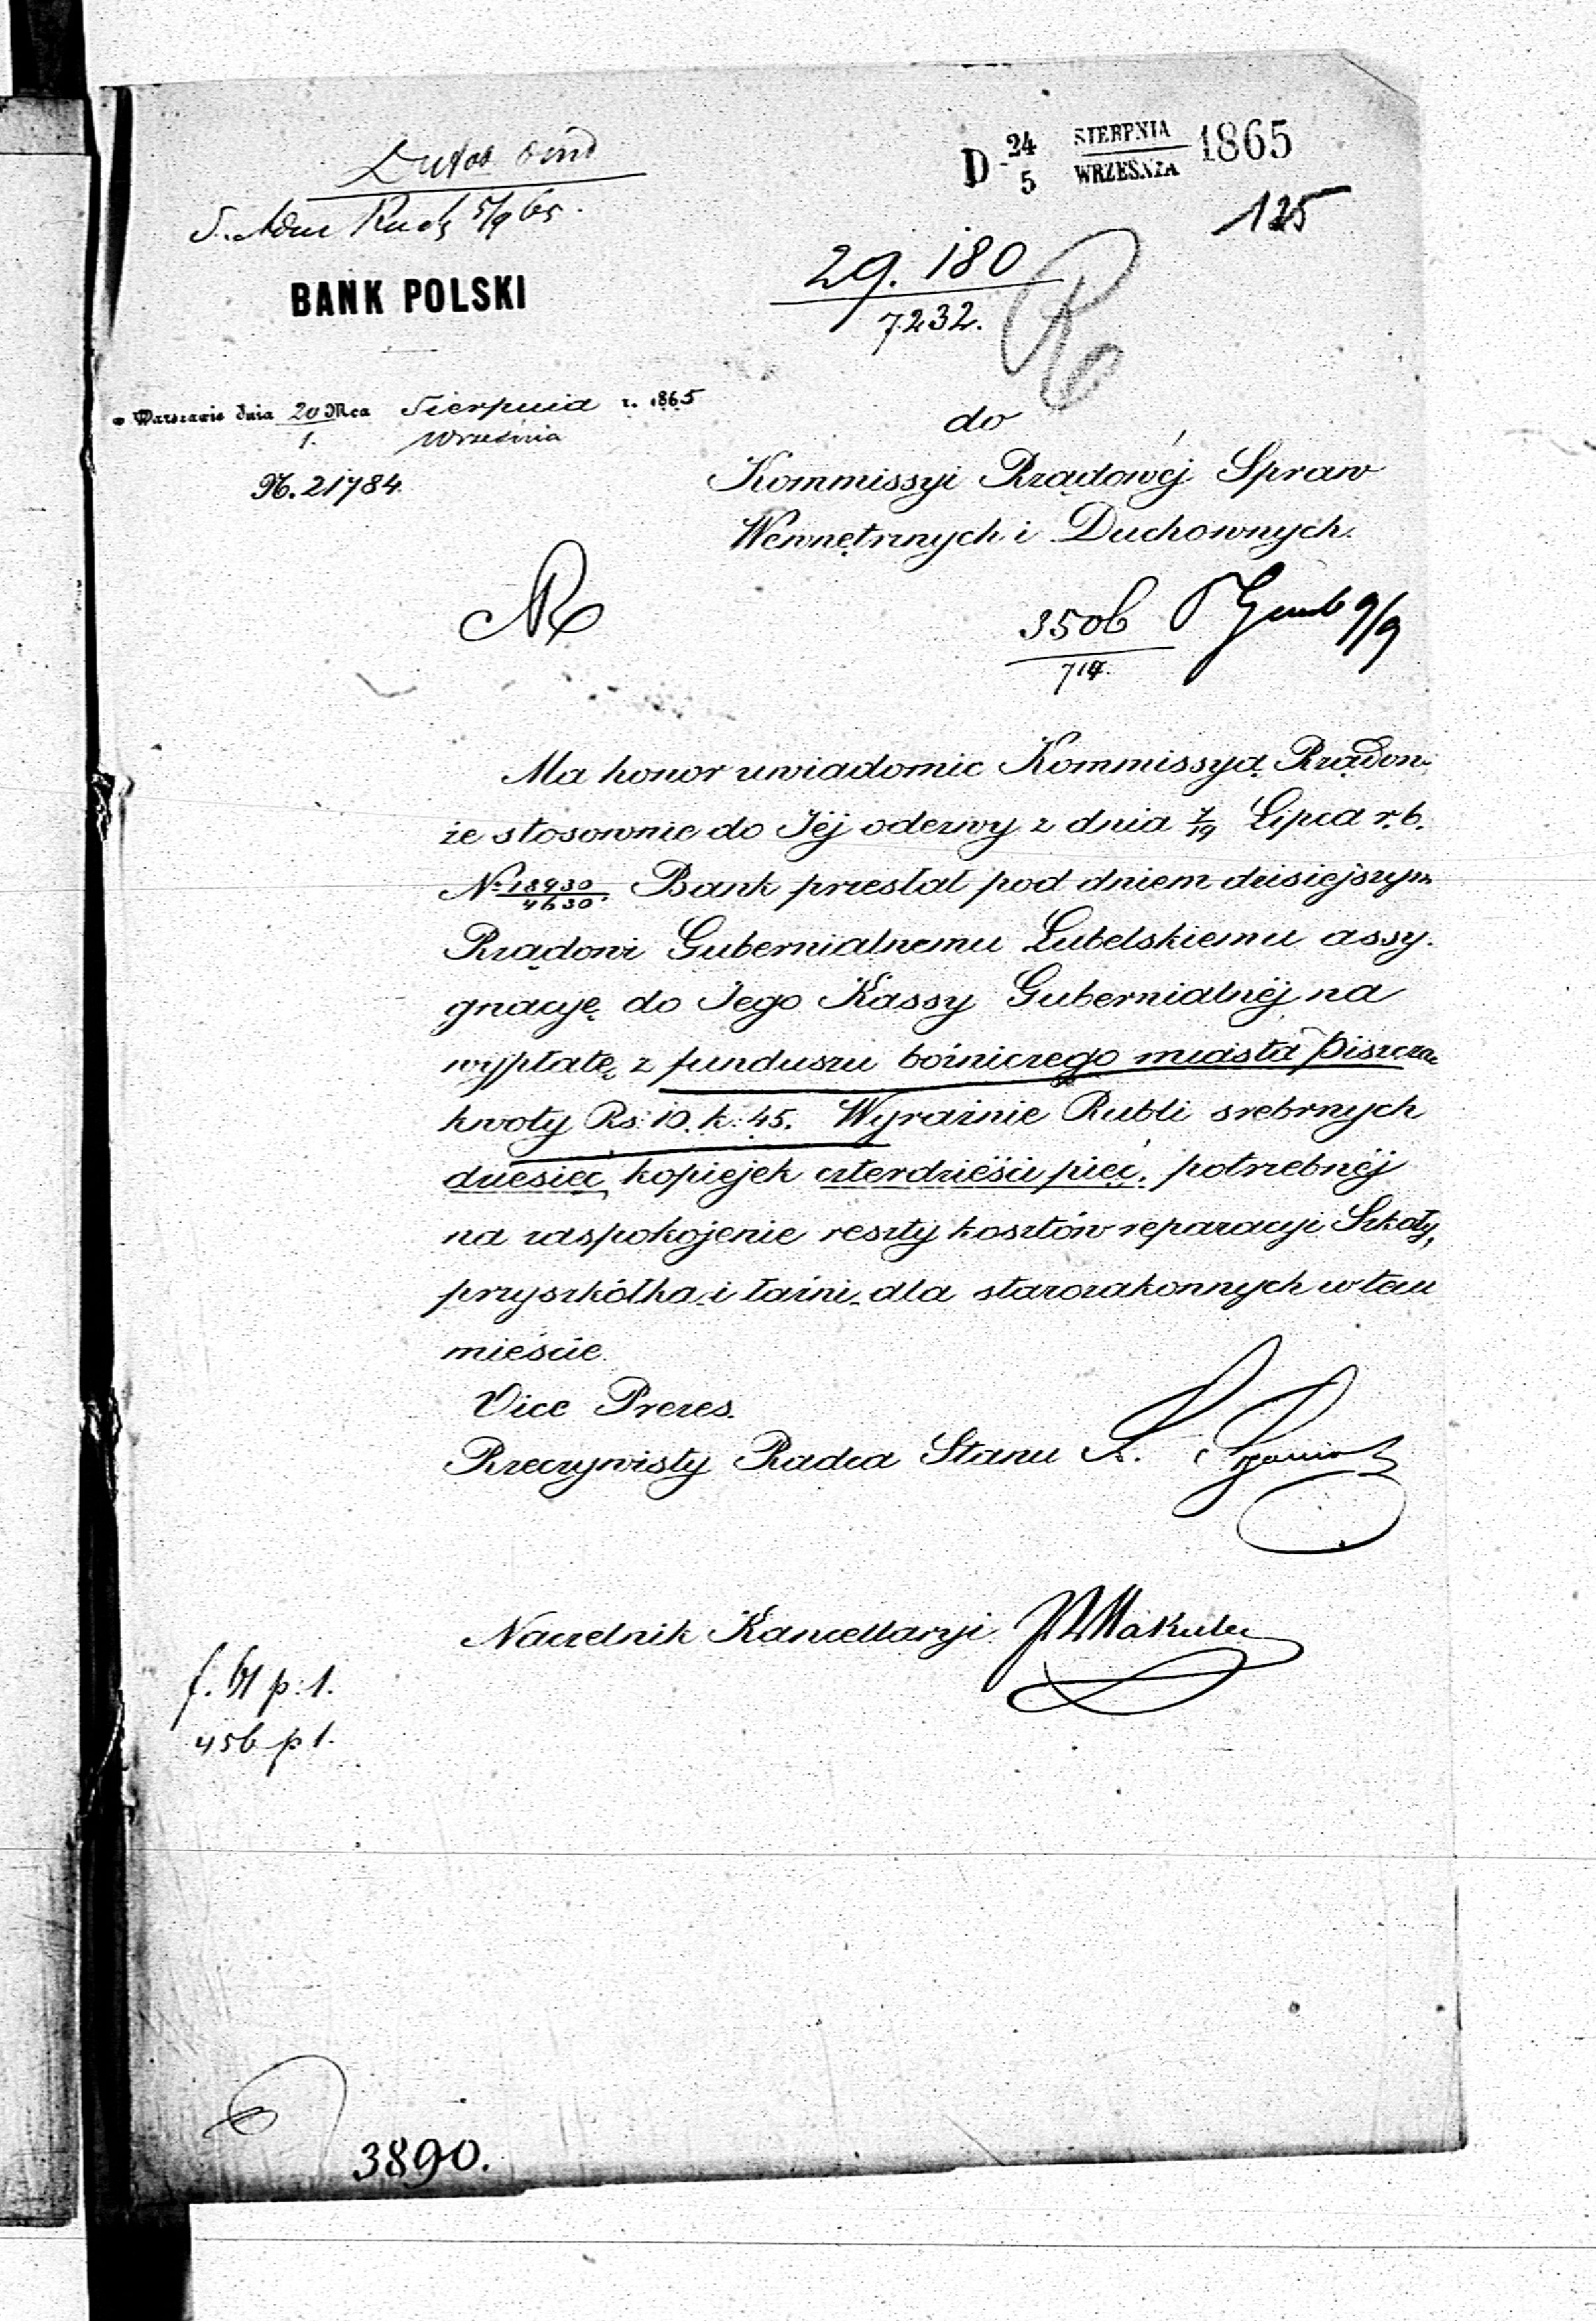 D 24/5 SIERPNIA/WRZEŚNIA 1865
125
5/9 65.
BANK POLSKI
29.180
7232.
w Warszawie dnia 20 Mca Sierpnia r. 1865
1. Września
N. 21784.
do
Kommissyi Rządowéj Spraw
Wewnętrznych i Duchownych.
3506 9/9
717.
Ma honor uwiadomic Kommissyą Rządow.
że stosownie do Jéj odezwy z dnia 7/19 Lipca r. b.
N: 18930/4630. Bank przesłał pod dniem dzisiejszym
Rządowi Gubernialnemu Lubelskiemu assy-
gnacyę do Jego Kassy Gubernialnéj na
wypłatę z funduszu bóżniczego miasta Piszczac
kwoty Rs: 10. k: 45. Wyraźnie Rubli srebrnych
dziesięc, kopiejek czterdzieści pięć. potrzebnéj
na zaspokojenie reszty kosztów reparacyi Szkoły,
przyszkółka i łaźni dla starozakonnych w tem
mieście.
Vice Prezes.
Rzeczywisty Radca Stanu
Naczelnik Kancellaryi
f. 61 p: 1.
456 p 1.
3890.